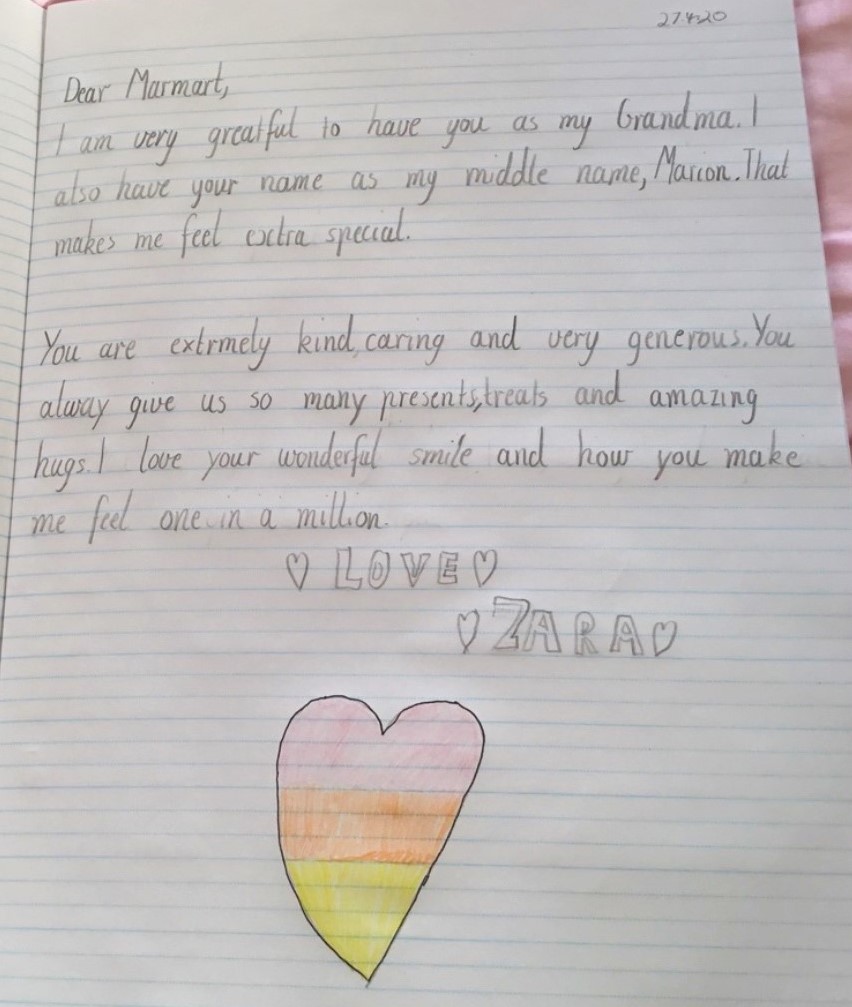 27.4.20
Dear Marmart,
I am very greatful to have you as my Grandma. I
also have your name as my middle name, Marion. That
makes me feel extra special.
You are extrmely kind, caring and very generous. You
alway give us so many presents, treats and amazing
hugs. I love your wonderful smile and how you make
me feel one in a million.
♡ LOVE ♡
♡ ZARA ♡